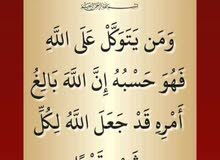 وَمَن يَتَوَكَّلْ عَلَى اللَّهِ
فَهُوَ حَسْبُهُ إِنَّ اللَّهَ بَالِغُ
أَمْرِهِ قَدْ جَعَلَ اللَّهُ لِكُلِّ